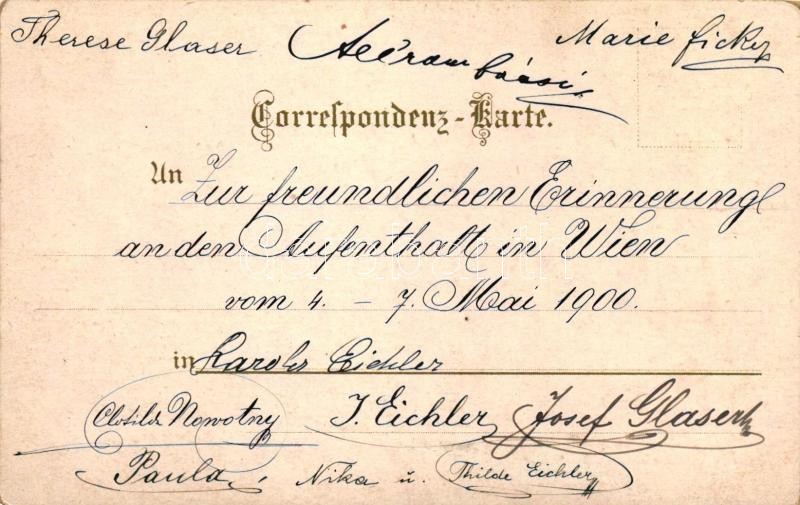 Therese Glaser Marie Ficker
bácsi
Correspondenz-Karte.
An Zur freundlichen Erinnerung
an den Aufenthalt in Wien
vom 4. – 7. Mai 1900.
in Eichler
Clotilde Nowotny J. Eichler Josef Glaser
Paula, Nika u. Thilde Eichler